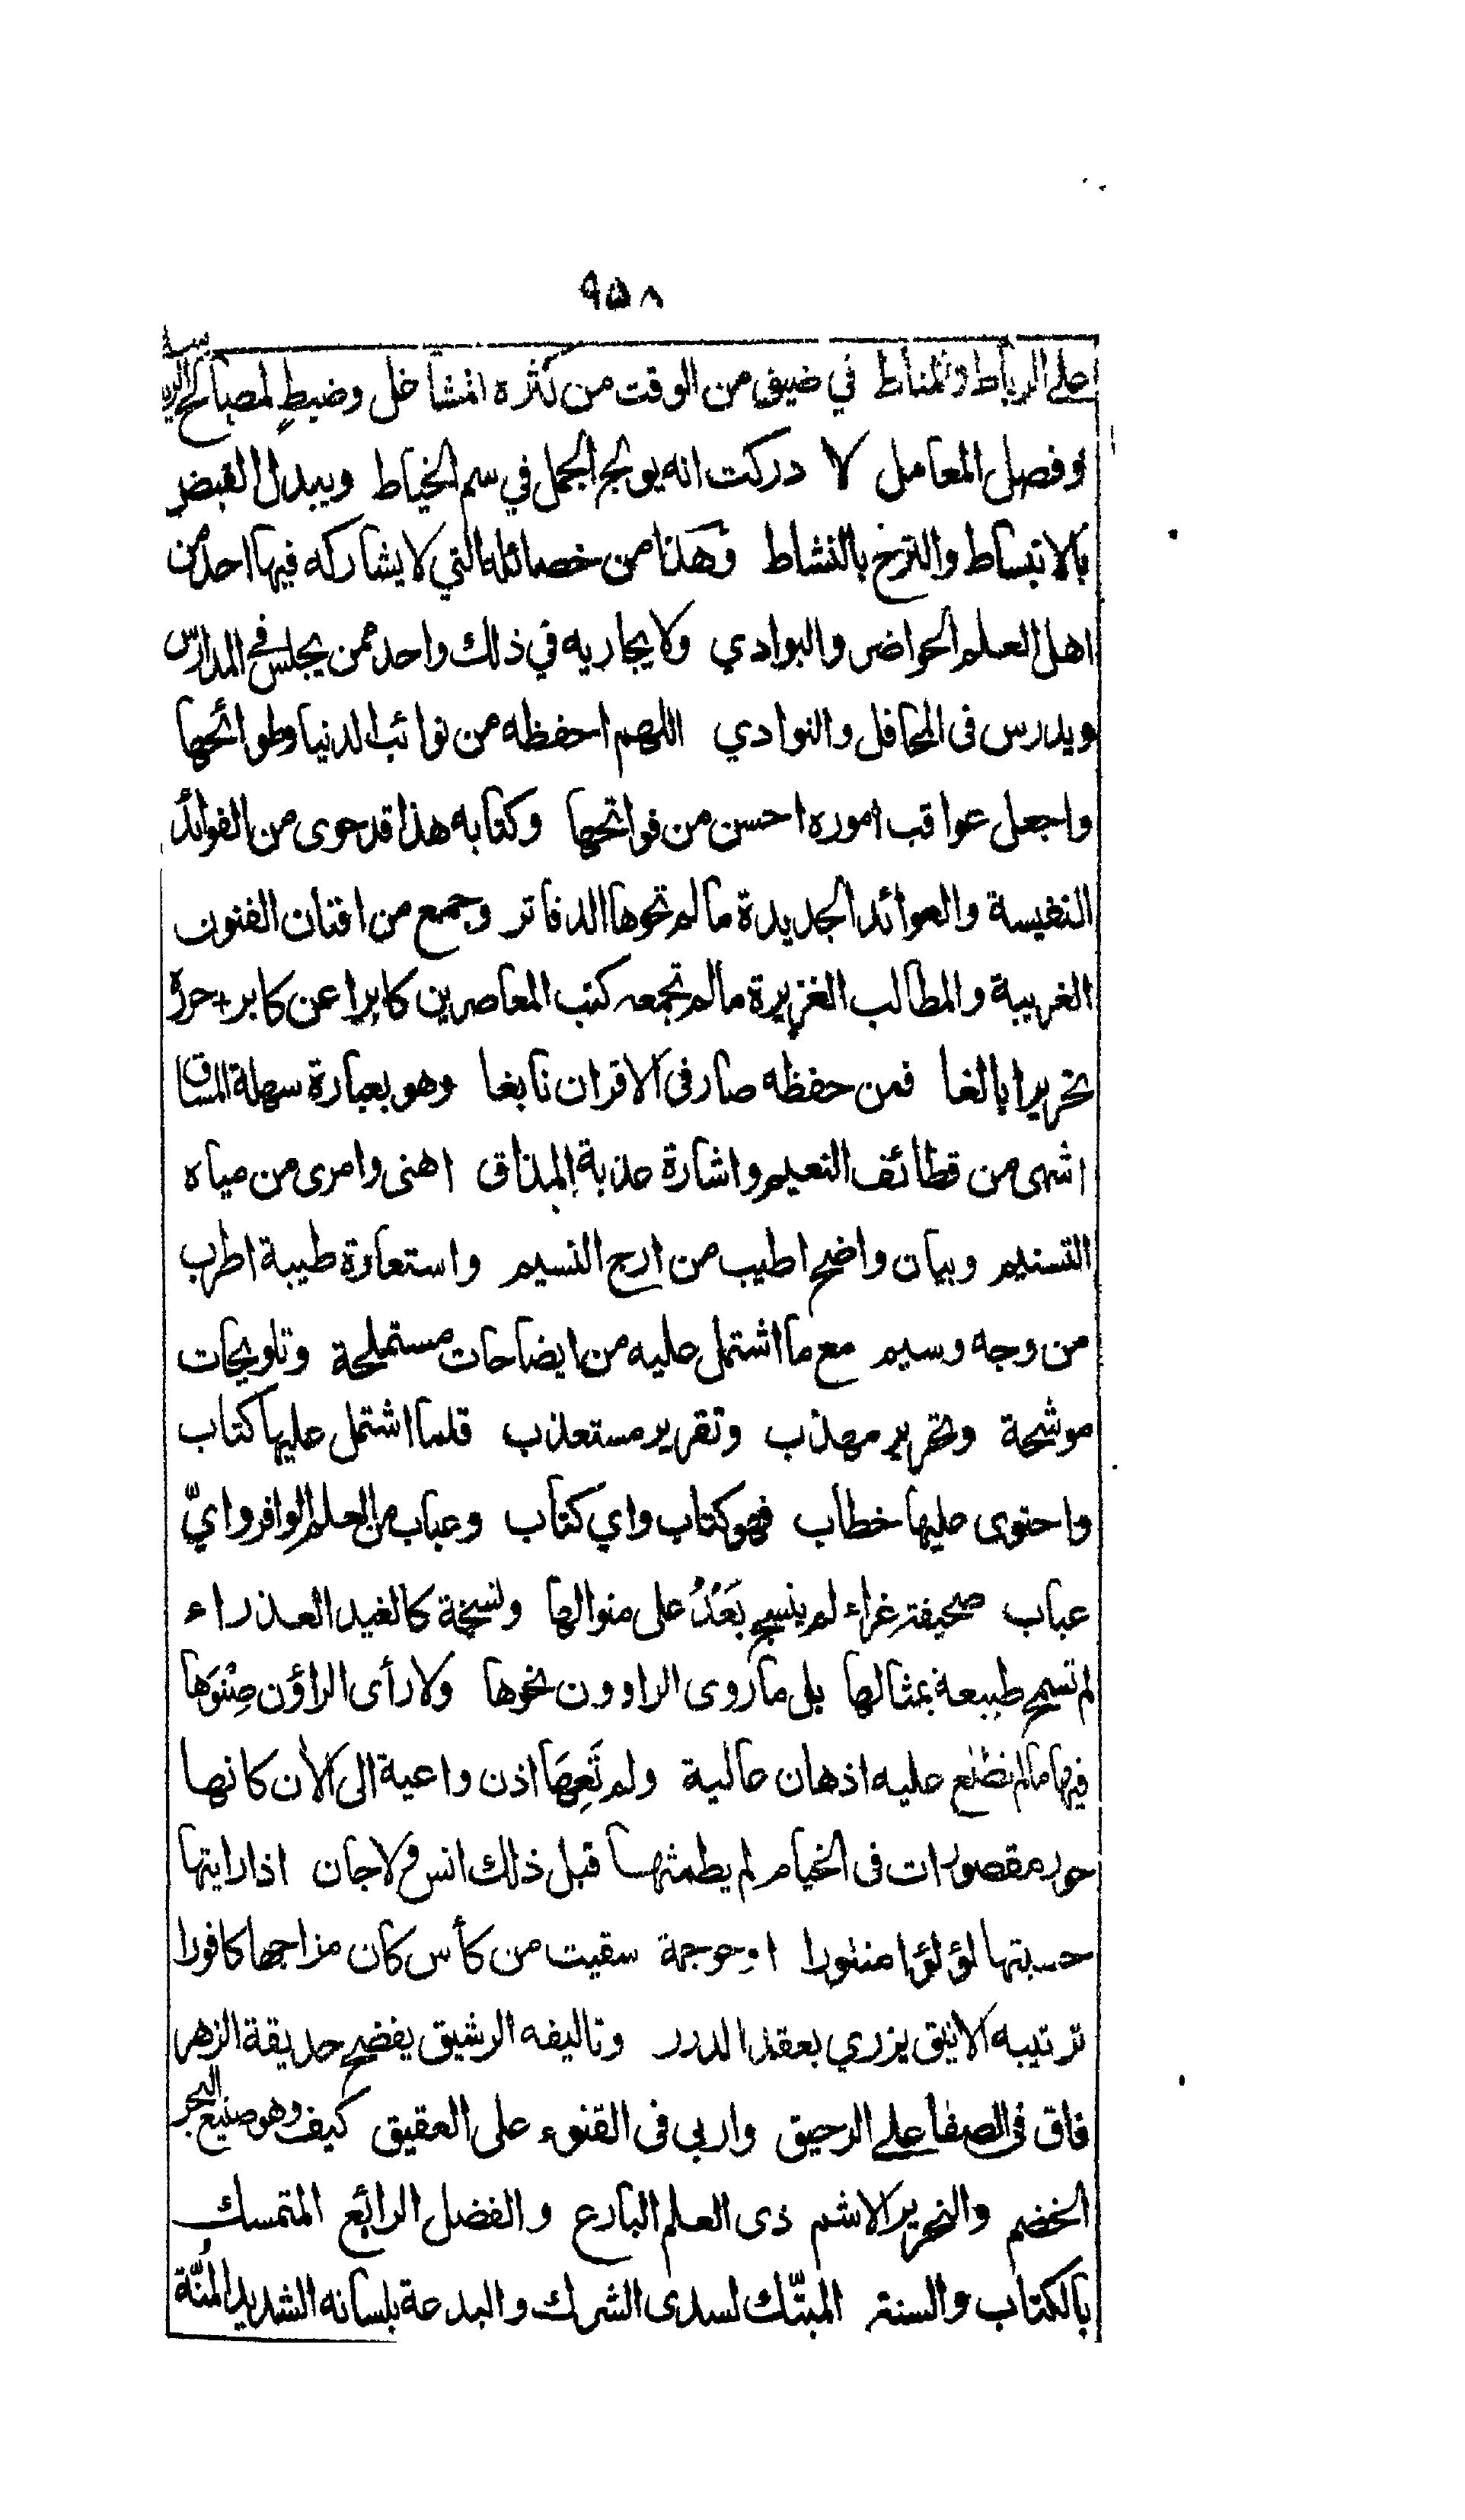 ٩٥٨
على الرباط والمناط في ضيق من الوقت من كثرة المشاغل وضبط لمصالح الرياسة
وفصل المعامل لا دركت انه يولج الجمل في سم الخياط ويبدل القبض
بالانبساط والترخ بالنشاط وهذا من خصائله التي لا يشاركه فيها احد من
اهل العلم الحواضر والبوادي ولا يجاريه في ذلك واحد ممن يجلس في المدارس
ويدرس فى المحافل والنوادي اللهم احفظه من نوائب الدنيا وطوائحها
واجعل عواقب اموره احسن من فواتحها وكتابه هذا قد حوى من الفوائد
النفيسة والعوائد الجديدة ما لم تحوها الدفاتر وجمع من افنان الفنون
الغريبة والمطالب الغزيرة ما لم تجمعه كتب المعاصرين كابرا عن كابر + حرره
تحريرا بالغا فمن حفظه صار فى الاقران نابغا وهو بعبارة سهلة المساق
اشهى من قطائف النعيم واشارة عذبة المذاق اهنى وامرى من مياه
التسنيم وبيان واضح اطيب من ارج النسيم واستعارة طيبة اطرب
من وجه وسيم مع ما اشتمل عليه من ايضاحات مستملحة وتلويحات
موشحة وتحرير مهذب وتقرير مستعذب قلما اشتمل عليها كتاب
واحتوى عليها خطاب فهو كتاب واي كتاب وعباب من العلم الوافر وايّ
عباب صحيفة غراء لم ينسج بَعْدُ على منوالها ونسخة كالغيد العذراء
لم تسمح طبيعة بمثالها بل ما روى الراوون نحوها ولا رأى الراؤن صِنْوَها
فيها ما لم تطلع عليه اذهان عالية ولم تَعِهَا اذن واعية الى الآن كانها
حور مقصورات فى الخيام لم يطمثها قبل ذلك انس ولا جان اذا رايتها
حسبتها لؤلؤا منثورا او حوجمة سقيت من كأس كان مزاجها كافورا
ترتيبه الانيق يزري بعقد الدرر وتاليفه الرشيق يفضح حديقة الزهر
فاق فى الصفا على الرحيق واربى فى القنوء على العقيق كيف وهو صنيع البحر
الخضم والنحرير الاشم ذى العلم البارع والفضل الرائع المتمسك
بالكتاب والسنة المبتّك لسدى الشرك والبدعة بلسانه الشديد المُنّة